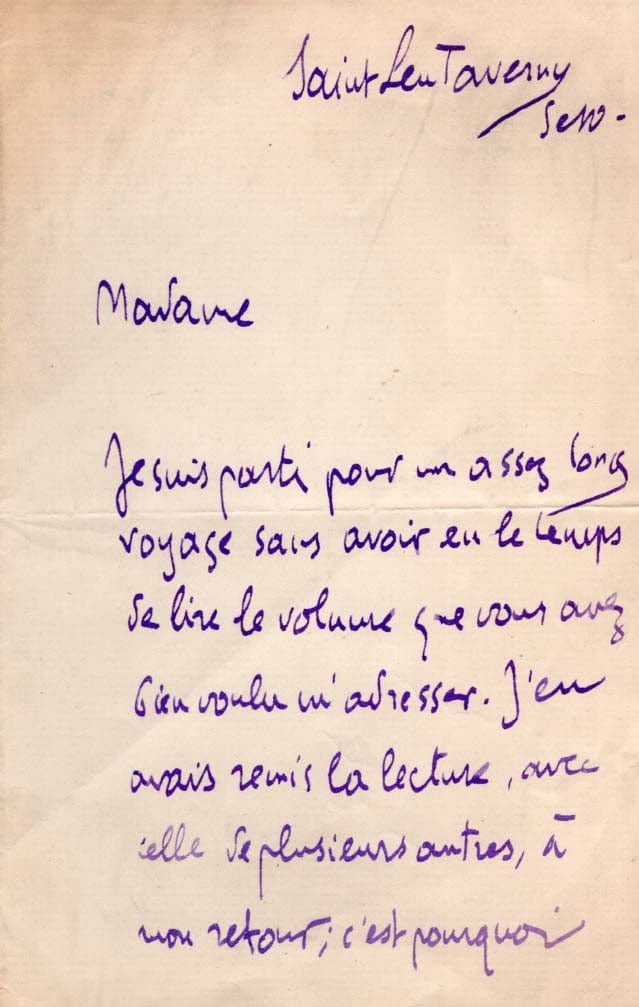 Saint Leu Taverny
S et O -
Madame
Je suis parti pour un assez long
voyage sans avoir eu le temps
de lire le volume que vous avez
bien voulu m'adresser. J'en
avais remis la lecture, avec
celle de plusieurs autres, à
mon retour; c'est pourquoi